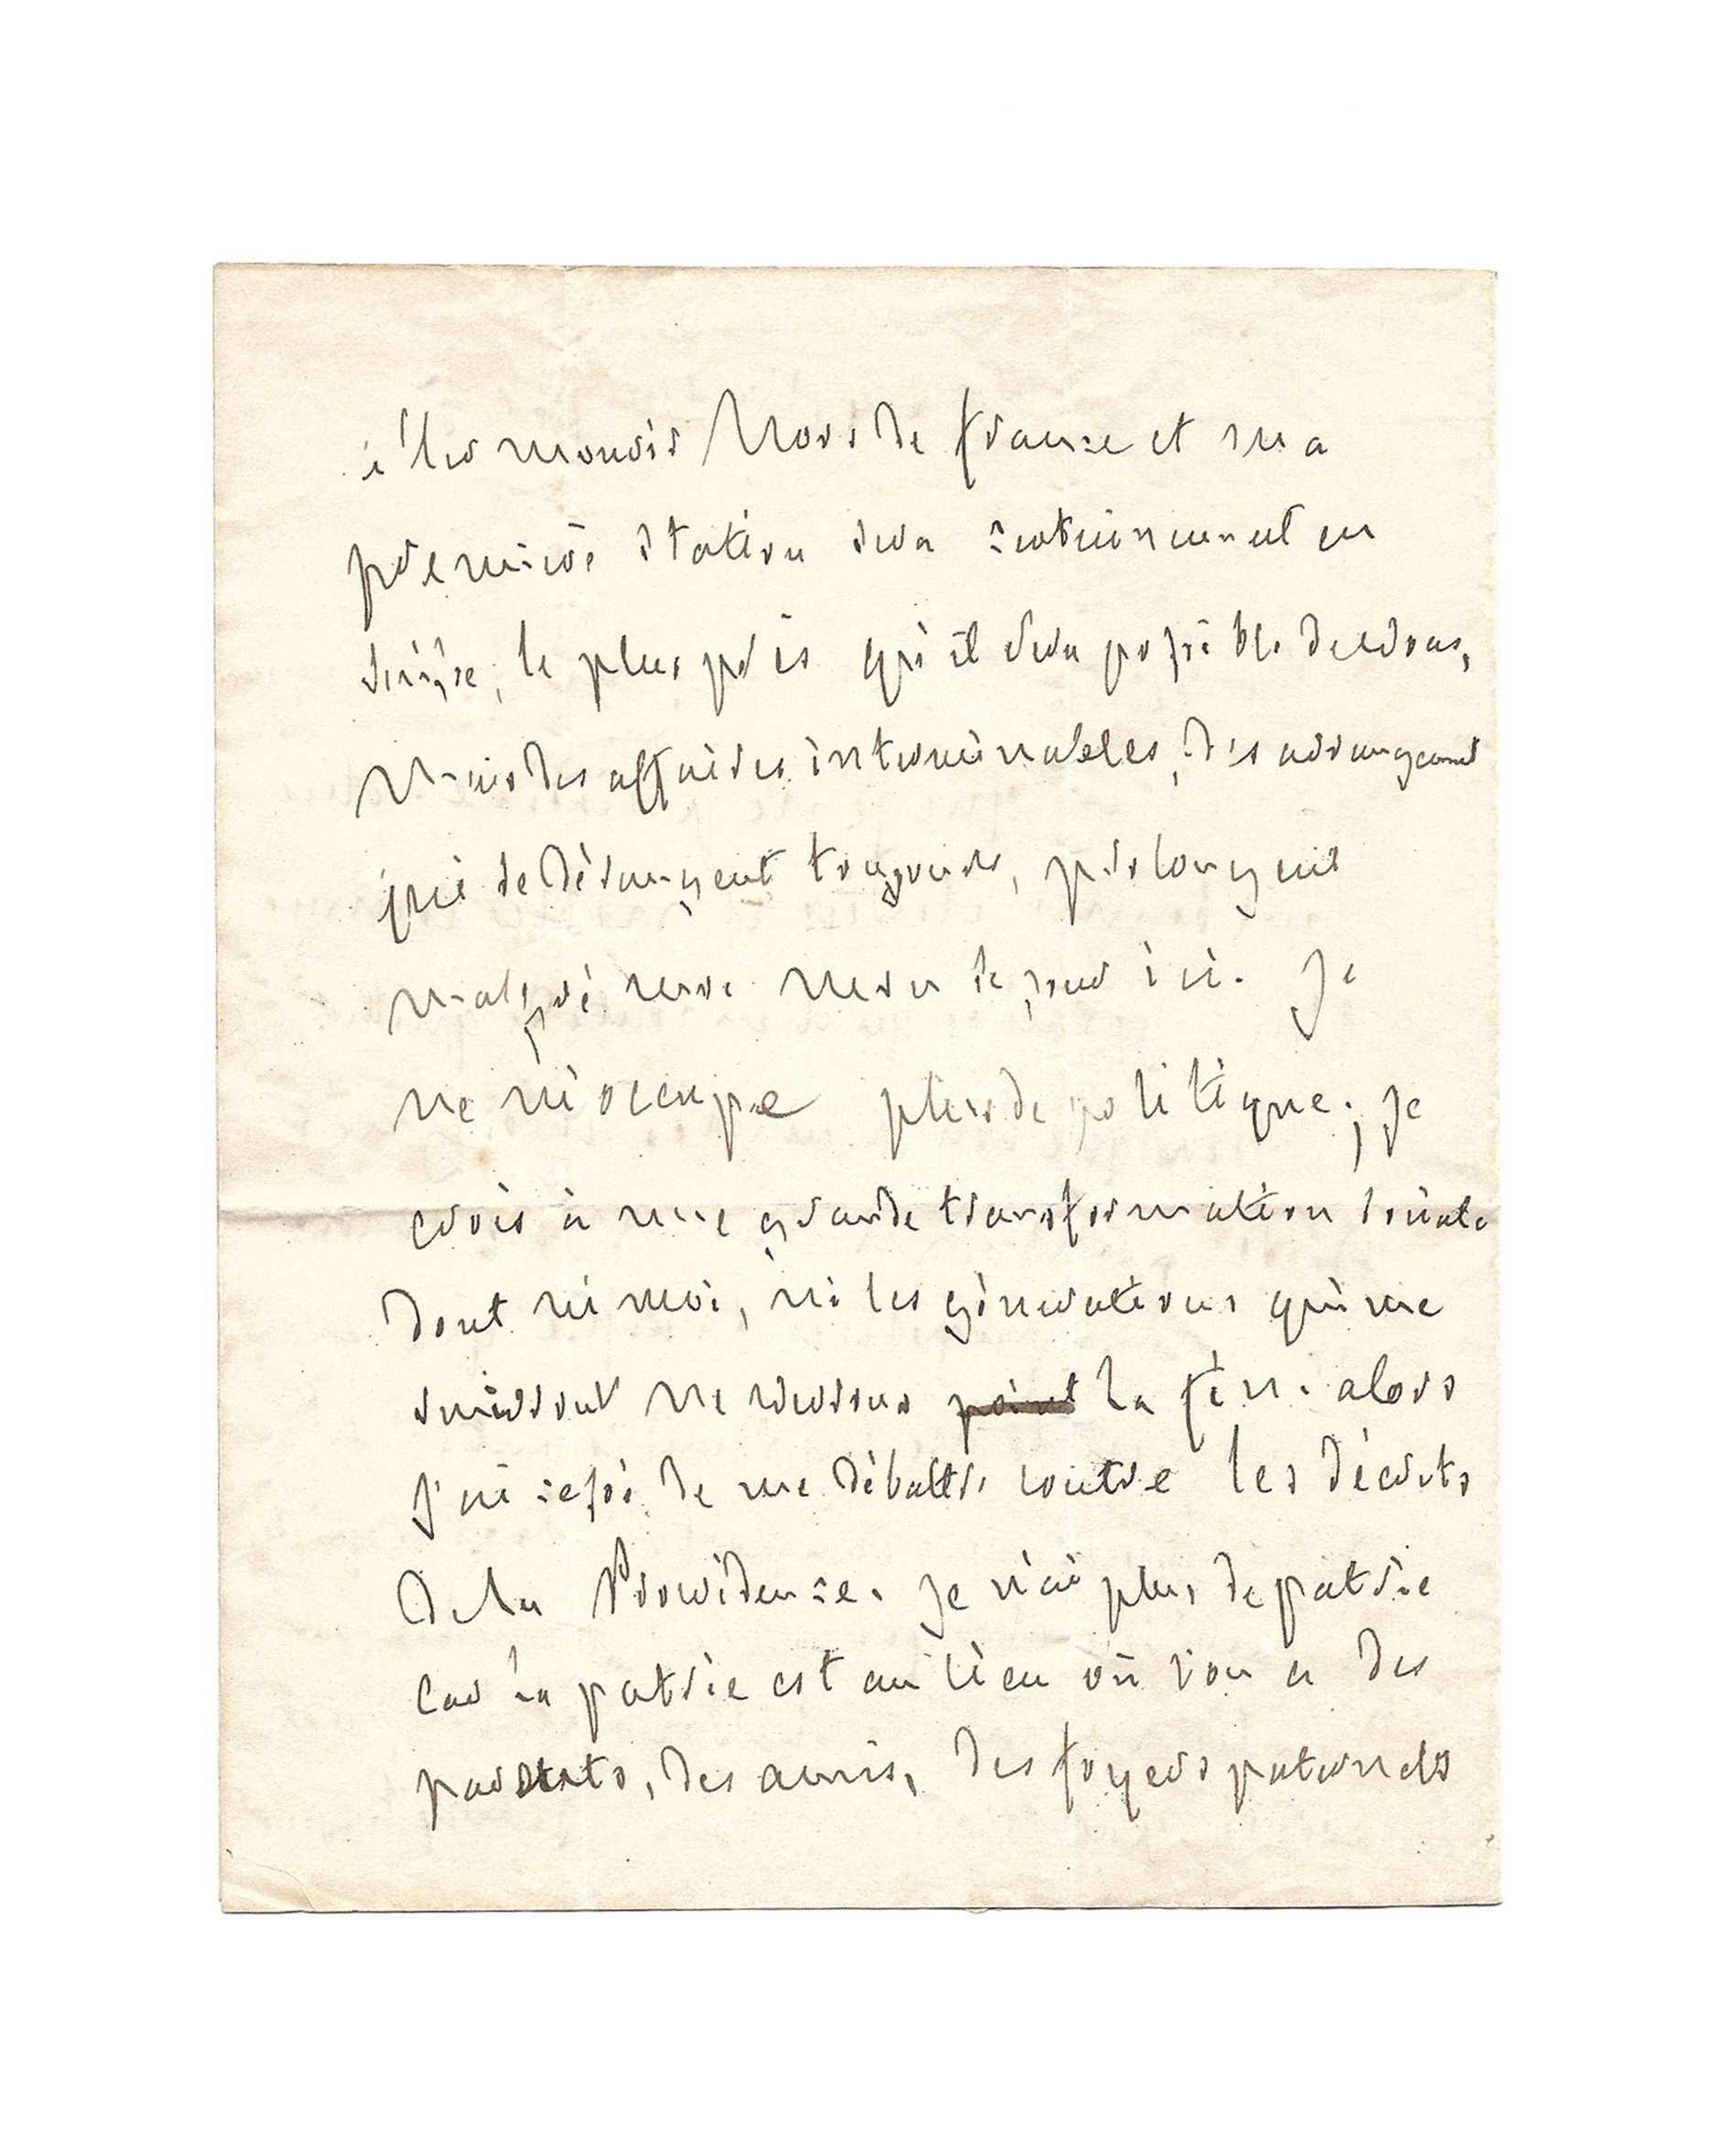 aller mourir hors de france et ma
première station sera certainement en
suisse, le plus près qu'il sera possible de vous,
Mais des affaires interminables, des arrangemens
qui se dérangent toujours, prolongent
malgré moi mon séjour ici. Je
ne m'occupe plus de politique; je
crois à une grande transformation sociale
dont ni moi, ni les générations qui me
suivront ne verrons point la fin. alors
j'ai cessé de me débattre contre les décrets
de la Providence. Je n'ai plus de patrie
car la patrie est au lieu où l'on a des
parents, des amis, des foyers paternels